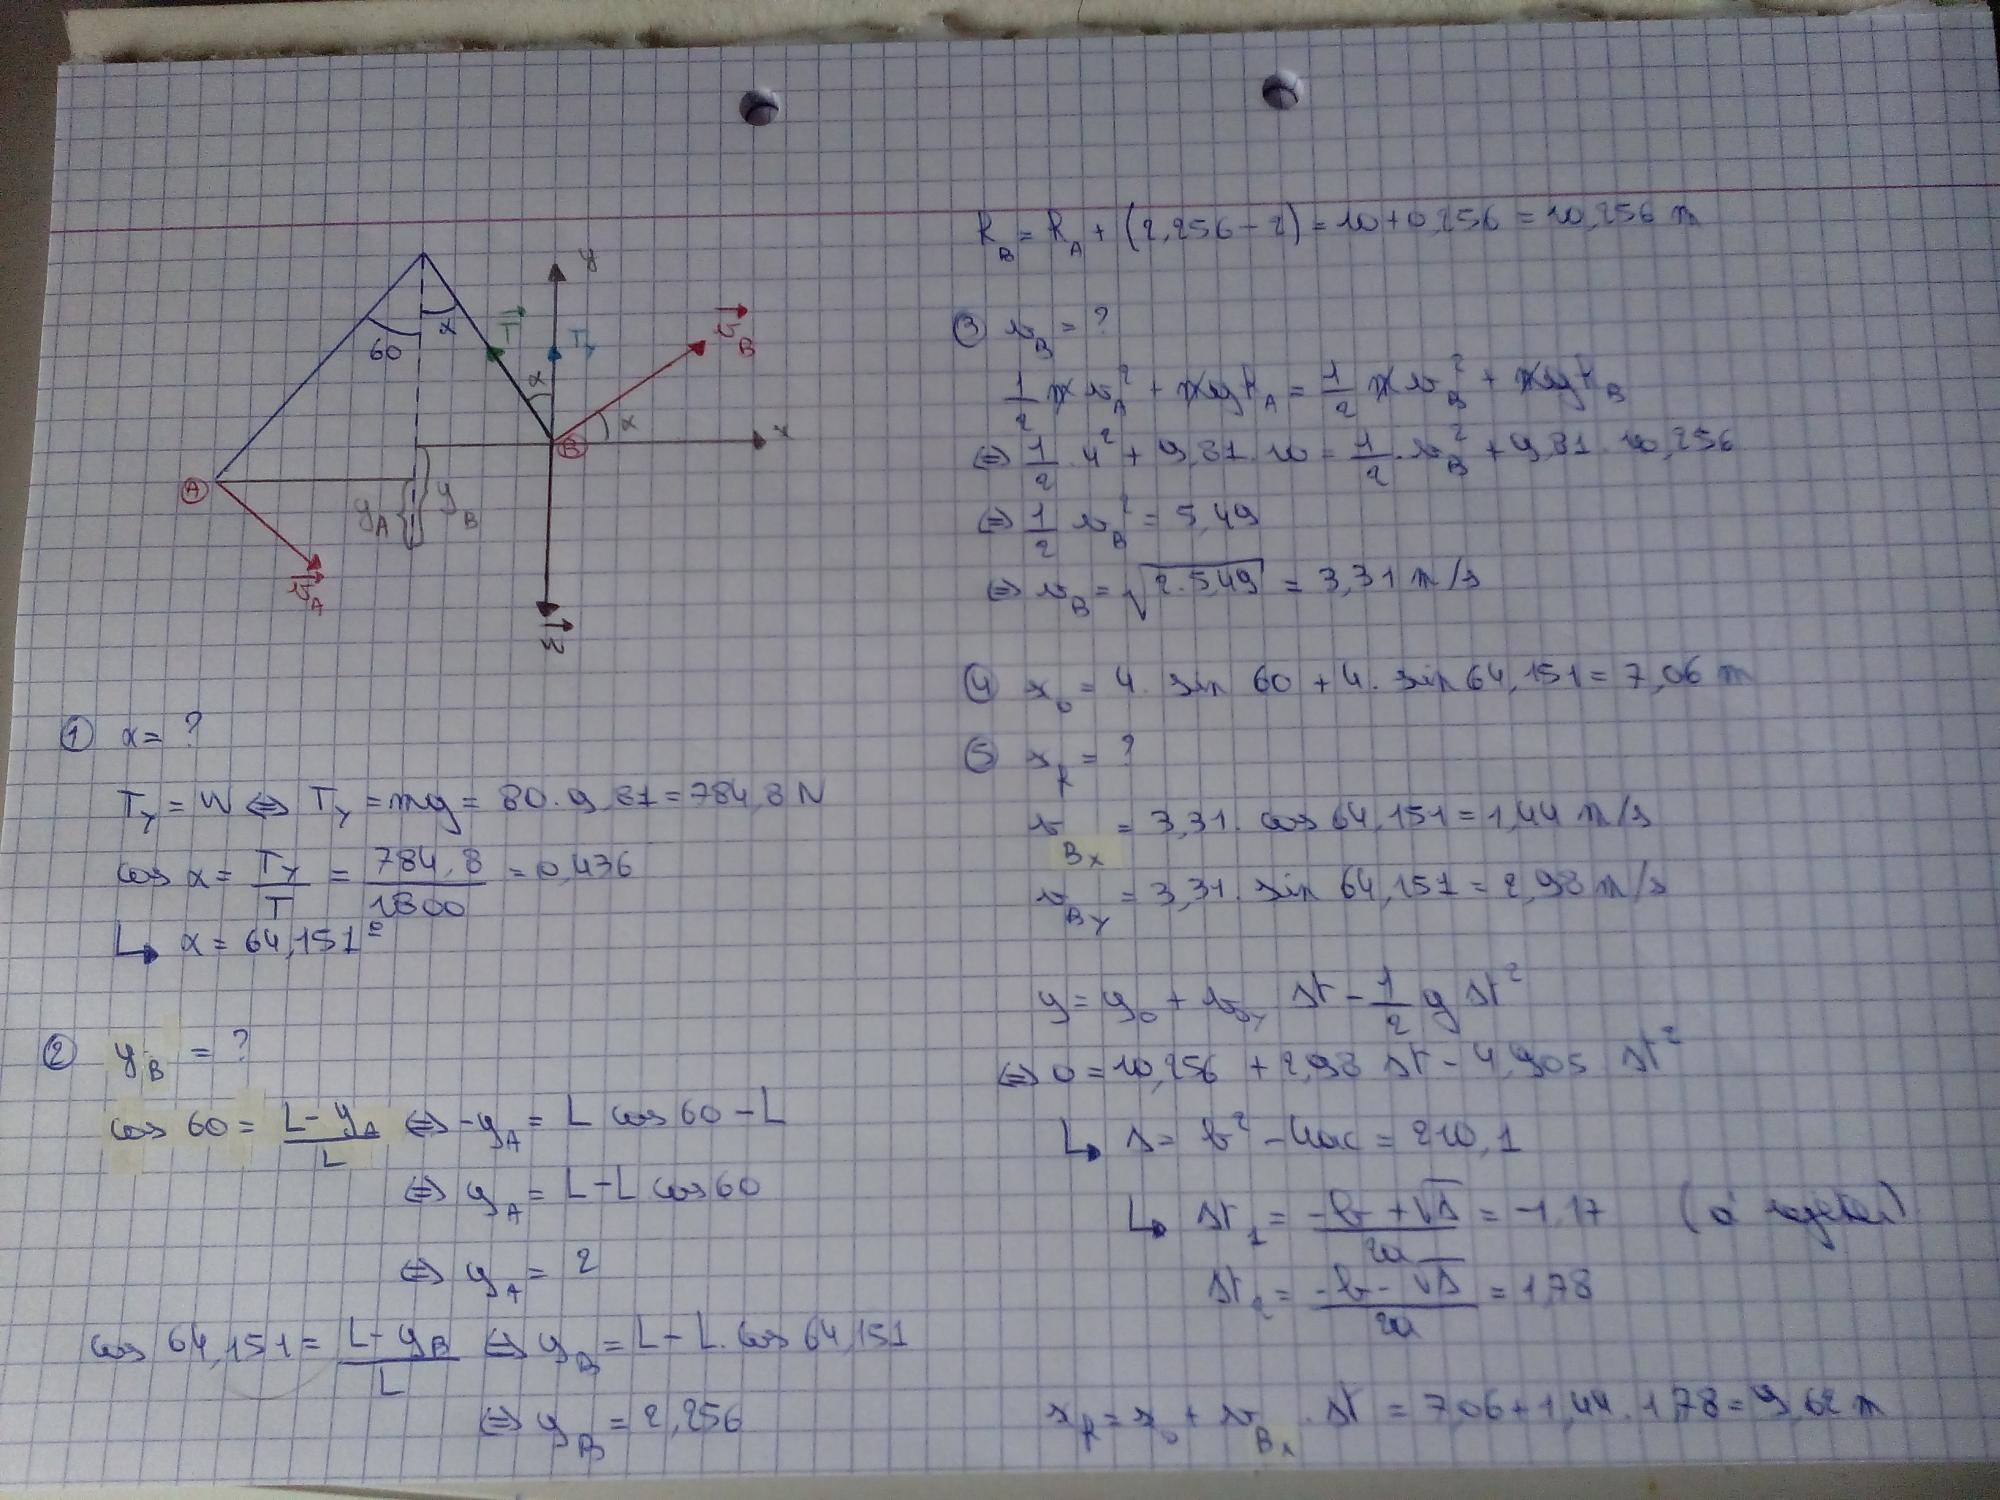 60
α
T⃗
T_y
y
α
v⃗_B
α
x
B
A
y_A
y_B
v⃗_A
W⃗
① α = ?
T_y = W ⇔ T_y = mg = 80 . 9,81 = 784,8 N
cos α = T_y / T = 784,8 / 1800 = 0,436
↳ α = 64,151°
② y_B = ?
cos 60 = (L - y_A) / L ⇔ -y_A = L cos 60 - L
⇔ y_A = L - L cos 60
⇔ y_A = 2
cos 64,151 = (L - y_B) / L ⇔ y_B = L - L . cos 64,151
⇔ y_B = 2,256
h_B = h_A + (2,256 - 2) = 10 + 0,256 = 10,256 m
③ v_B = ?
1/2 m v_A² + m g h_A = 1/2 m v_B² + m g h_B
⇔ 1/2 . 4² + 9,81 . 10 = 1/2 . v_B² + 9,81 . 10,256
⇔ 1/2 v_B² = 5,49
⇔ v_B = √(2 . 5,49) = 3,31 m/s
④ x_0 = 4 . sin 60 + 4 . sin 64,151 = 7,06 m
⑤ x_f = ?
v_Bx = 3,31 . cos 64,151 = 1,44 m/s
v_By = 3,31 . sin 64,151 = 2,98 m/s
y = y_0 + v_0y Δt - 1/2 g Δt²
⇔ 0 = 10,256 + 2,98 Δt - 4,905 Δt²
↳ Δ = b² - 4ac = 210,1
↳ Δt_1 = (-b + √Δ) / 2a = -1,17 (à rejeter)
Δt_2 = (-b - √Δ) / 2a = 1,78
x_f = x_0 + v_Bx . Δt = 7,06 + 1,44 . 1,78 = 9,62 m